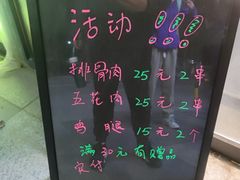 活动
排骨肉 25元2串
五花肉 25元2串
鸡腿 15元2个
满30元有赠品